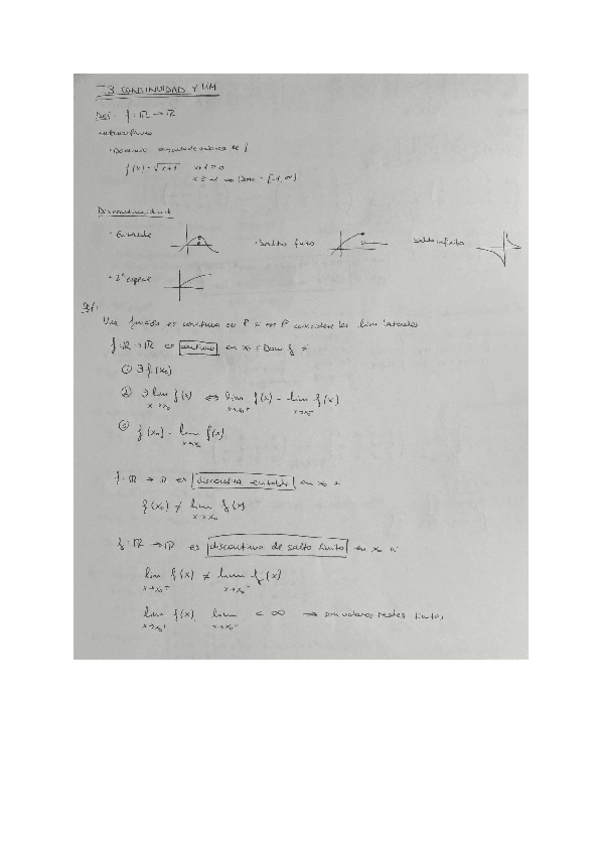 3 CONTINUIDAD Y LIM
Def: f: ℝ → ℝ
• Dominio valores de f
f(x) = √x+1 x+1 ≥ 0
x ≥ -1 Dom = [-1, ∞)
Discontinuidad
• Evitable • Salto finito Salto infinito
• 2ª especie
Def:
Una función es continua en P si en P coinciden los lim laterales
f: ℝ → ℝ es continua en x₀ ∈ Dom f si
① ∃ f(x₀)
② ∃ lim f(x) ⇔ lim f(x) = lim f(x)
x→x₀ x→x₀⁺ x→x₀⁻
③ f(x₀) = lim f(x)
x→x₀
f: ℝ → ℝ es discontinua evitable en x₀ si
f(x₀) ≠ lim f(x)
x→x₀
f: ℝ → ℝ es discontinua de salto finito en x₀ si
lim f(x) ≠ lim f(x)
x→x₀⁺ x→x₀⁻
lim f(x) lim < ∞ → son valores reales finitos
x→x₀⁺ x→x₀⁻